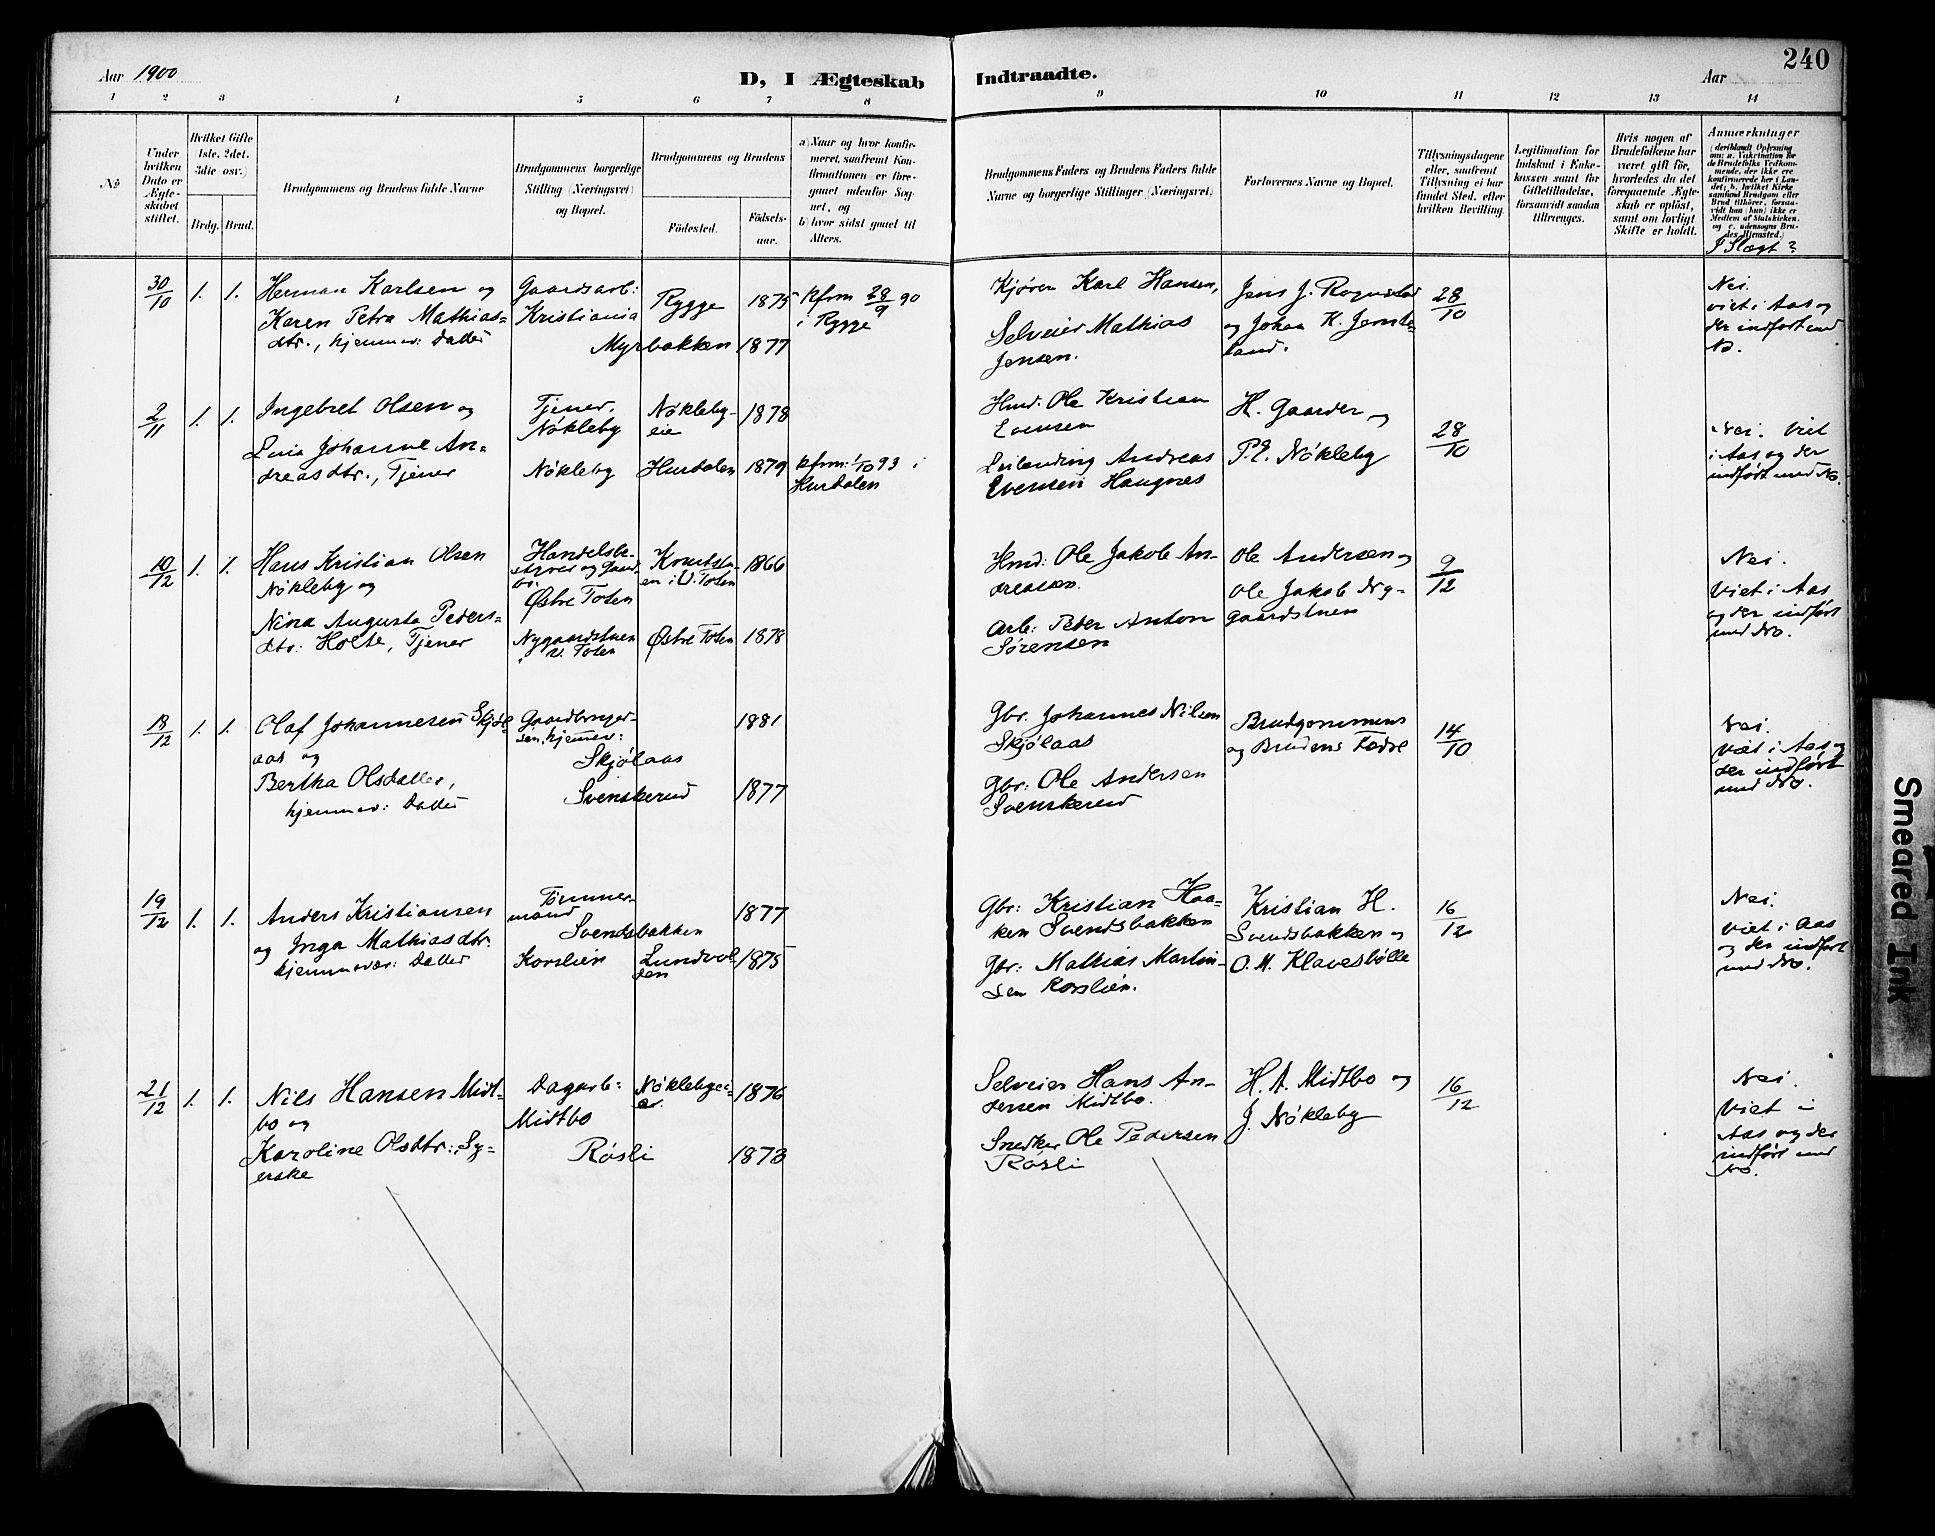 240
Aar 1900
D, I Ægteskab Indtraadte.
Aar
1 2 3 4 5 6 7 8 9 10 11 12 13 14
No
Under
hvilken
Dato er
Ægte-
skabet
stiftet.
Hvilket Gifte
1ste. 2det.
3die osv.)
Brdg. Brud.
Brudgommens og Brudens fulde Navne
Brudgommens borgerlige
Stilling (Næringsvei)
og Bopæl.
Brudgommens og Brudens
Födested.
Födsels-
aar.
a) Naar og hvor konfir-
meret, saafremt Kon-
firmationen er fore-
gaaet udenfor Sog-
net, og
b) hvor sidst gaaet til
Alters.
Brudgommens Faders og Brudens Faders fulde
Navne og borgerlige Stillinger (Næringsvei)
Forlovernes Navne og Bopæl.
Tillysningsdagene
eller, saafremt
Tillysning ei har
fundet Sted, efter
hvilken Bevilling.
Legitimation for
Indskud i Enke-
kassen samt for
Giftetilladelse,
forsaavidt saadan
tiltrænges.
Hvis nogen af
Brudefolkene har
været gift før,
hvorledes da det
foregaaende Ægte-
skab er oplöst,
samt om lovligt
Skifte er holdt.
Anmærkninger
(deriblandt Oplysning
om: a. Vakcination for
de Brudefolks Vedkom-
mende, der ikke ere
konfirmerede her i Lan-
det; b. hvilket Kirke-
samfund Brudgom eller
Brud tilhører, forsaa-
vidt han (hun) ikke er
Medlem af Statskirken,
og c. udensogns Bru-
des Hjemsted.)
I Slægt?
30/10 1. 1. Herman Karlsen og
Karen Petra Mathias-
dtr., hjemmev: Datter
Gaardsarb:
Kristiania
Rygge 1875
Myrbakken 1877
kfrm 28/9 90
i Rygge
Kjører Karl Hansen,
Selveier Mathias
Jensen.
Jens J. Rognstad
og Johan K. Jemte-
land.
28/10
Nei.
viet i Aas og
der indført med
No.
2/11 1. 1. Ingebret Olsen og
Lina Johanne An-
dreasdtr., Tjener
Tjener,
Nøkleby
Nøkleby-
eie
1878
Nøkleby Hurdalen 1879
kfrm: 1/10 93 i
Hurdalen
Hmd: Ole Kristian
Evensen
Leilending Andreas
Evensen Haugnes
H. Gaarder og
P. E. Nøkleby
28/10
Nei. Viet
i Aas og der
indført med No.
10/12 1. 1. Hans Kristian Olsen
Nøkleby og
Nina Augusta Peders-
dtr: Holte, Tjener
Handelsbe-
styrer og Gaard-
br.
Østre Toten
1866
Nygaardstuen
i V. Toten
Østre Toten 1878
Hmd: Ole Jakob An-
dreasen.
Arb: Peder Anton
Sørensen
Ole Andersen og
Ole Jakob Ny-
gaardstuen
9/12
Nei.
Viet i Aas
og der indført
med No.
18/12 1. 1. Olaf Johannesen Skjøl-
aas og
Bertha Olsdatter,
hjemmev: Datter
Gaardbruger-
søn, hjemmev:
Skjølaas
1881
Svenskerud 1877
Gbr. Johannes Nilsen
Skjølaas
Gbr: Ole Andersen
Svenskerud
Brudgommens
og Brudens Fædre
14/10
Nei.
viet i Aas og
der indført
med No.
19/12 1. 1. Anders Kristiansen
og Inga Mathiasdtr.
hjemmevær: Datter
Tømmer-
mand
Svendsbakken
1877
Korslien Lundvol-
den
1875
Gbr: Kristian Haa-
ken Svendsbakken
Gbr: Mathias Martin-
sen Korslien.
Kristian H.
Svendsbakken og
O. M. Klavesbølle
16/12
Nei.
viet i Aas
og der indført
med No.
21/12 1. 1. Nils Hansen Midt-
bo og
Karoline Olsdtr:, Sy-
erske
Dagarb:
Midtbo
Nøklebyei-
er.
1876
Røsli 1873
Selveier Hans An-
dersen Midtbo.
Snedker Ole Pedersen
Røsli
H. A. Midtbo og
J. Nøkleby
16/12
Nei.
Viet i
Aas og der
indført med
No.
Smeared Ink